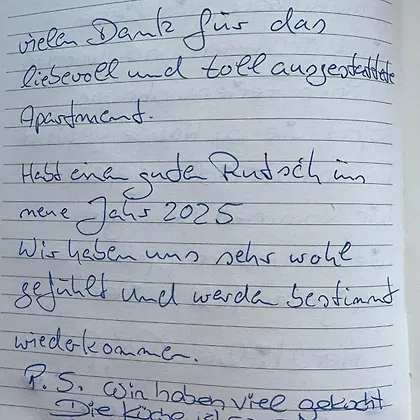 vielen Dank für das
liebevoll und toll ausgestattete
Apartment.
Habt einen guten Rutsch ins
neue Jahr 2025
Wir haben uns sehr wohl
gefühlt und werden bestimmt
wiederkommen.
P.S. Wir haben viel gekocht
Die Küche ist